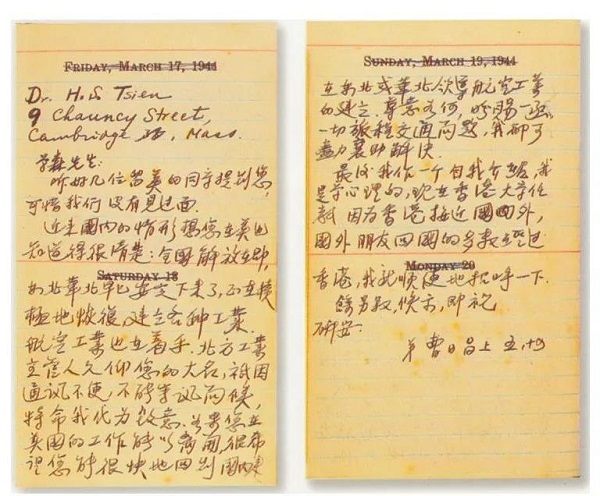 FRIDAY, MARCH 17, 1944
Dr. H.S Tsien
9 Chauncy Street,
Cambridge 38, Mass.
学森先生:
听好几位留美的同学提到您,
可惜我们没有见过面.
近来国内的情形想您在美也
知道得很清楚:全国解放在即,
SATURDAY 18
东北华北早已安定下来了,正在积
极地恢复,建立各种工业.
航空工业也在着手.北方工业
主管人久仰您的大名,祇因
通讯不便,不能寄讯问候,
特命我代为致意.如果您在
美国的工作能以离开,很希
望您能很快地回到国内来
SUNDAY, MARCH 19, 1944
在东北或华北领导航空工业
的建立.尊意如何,盼赐一函.
一切旅程交通问题,我都可
尽力襄助解决.
最后我作一个自我介绍,我
是学心理的,现在香港大学任
教 因为香港接近国内外,
国外朋友回国的多数经过
MONDAY 20
香港,我就顺便地招呼一下.
余另叙,候示,即祝
研安.
弟曹日昌上 五,十四